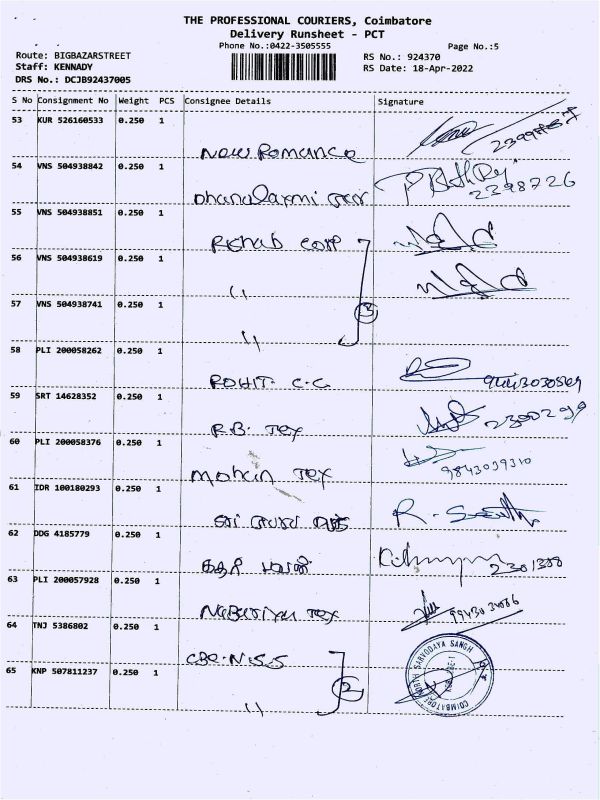 THE PROFESSIONAL COURIERS, Coimbatore
Delivery Runsheet - PCT
Phone No.:0422-3505555
Page No.:5
Route: BIGBAZARSTREET
Staff: KENNADY
DRS No.: DCJB92437005
RS No.: 924370
RS Date: 18-Apr-2022
S No Consignment No Weight PCS Consignee Details Signature
53 KUR 526160533 0.250 1
New Romance
54 VNS 504938842 0.250 1
Dhanalaxmi
2398726
55 VNS 504938851 0.250 1
Rishab Corp
56 VNS 504938619 0.250 1
''
57 VNS 504938741 0.250 1
3
''
58 PLI 200058262 0.250 1
ROHIT. C.C
59 SRT 14628352 0.250 1
R.B. Tex
60 PLI 200058376 0.250 1
Tex
9843039310
61 IDR 100180293 0.250 1
Sri
R.
62 DDG 4185779 0.250 1
63 PLI 200057928 0.250 1
Tex
64 TNJ 5386802 0.250 1
CBE.N.S.S
SARVODAYA SANGH
65 KNP 507811237 0.250 1
2
''